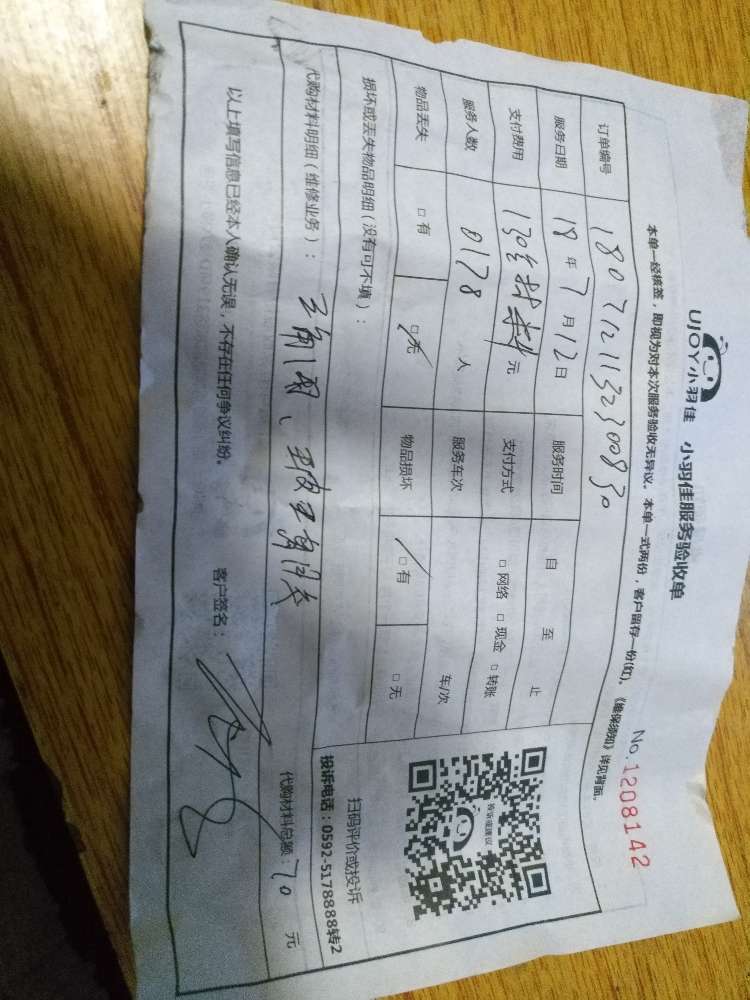 UJOY小羽佳 小羽佳服务验收单
No.1208142
本单一经核签，即视为对本次服务验收无异议。本单一式两份，客户留存一份(红)。《维保须知》详见背面。
订单编号 1807121132300830
服务日期 18年7月12日 服务时间 自 至 止
支付费用 130 元 支付方式 □网络 □现金 □转账
服务人数 0178 人 服务车次 车/次
物品丢失 □有 □无 物品损坏 □有 □无
投诉或建议
扫码评价或投诉
投诉电话：0592-5178888转2
损坏或丢失物品明细(没有可不填)：
代购材料明细(维修业务)： 三角
代购材料总额：70 元
以上填写信息已经本人确认无误，不存在任何争议纠纷。 客户签名：